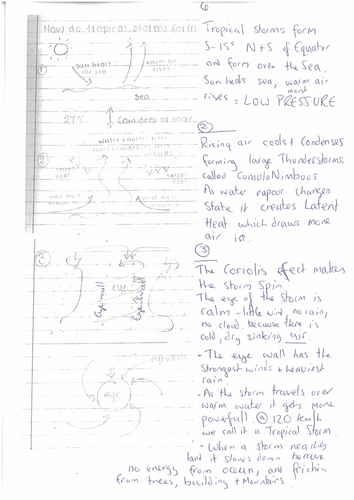 How do tropical storms form
Sun heats the sea
warm air rises
①
Sea
27°C
60m deep or more
water vapour
②
latent heat
latent heat
③
Eyewall
eye
Eyewall
eye
Tropical storms form
5-15° N+S of Equator
and form over the Sea.
Sun heats sea, warm moist air
rises = LOW PRESSURE
②
Rising air cools + Condenses
forming large Thunderstorms
called CumuloNimbous
As water vapour changes
State it creates Latent
Heat which draws more
air in.
③
The Coriolis effect makes
the storm Spin
The eye of the storm is
calm - little wind, no rain,
no cloud because there is
cold, dry sinking air.
- The eye wall has the
strongest winds + heaviest
rain.
- As the storm travels over
warm water it gets more
powerfull. @ 120 km/h
we call it a Tropical Storm
- When a storm reaches
land it slows down because
no energy from ocean, and friction
from trees, building + Mountains.